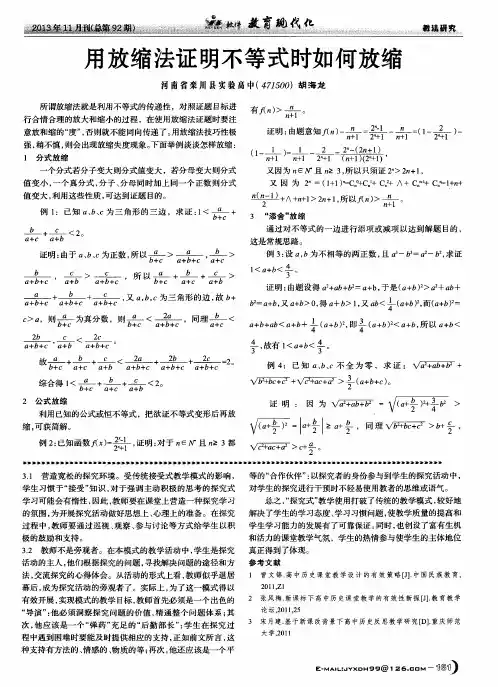 2013年11月刊(总第92期)
教育现代化
教法研究
用放缩法证明不等式时如何放缩
河南省栾川县实验高中(471500) 胡海龙
所谓放缩法就是利用不等式的传递性，对照证题目标进
行合情合理的放大和缩小的过程，在使用放缩法证题时要注
意放和缩的“度”，否则就不能同向传递了，用放缩法技巧性极
强，稍不慎，则会出现放缩失度现象。下面举例谈谈怎样放缩：
1 分式放缩
一个分式若分子变大则分式值变大，若分母变大则分式
值变小，一个真分式，分子、分母同时加上同一个正数则分式
值变大，利用这些性质，可达到证题目的。
例1：已知a、b、c为三角形的三边，求证：1< a/(b+c) +
b/(a+c) + c/(a+b) <2。
证明：由于a、b、c为正数，所以 a/(b+c) > a/(a+b+c) , b/(a+c) >
b/(a+b+c) , c/(a+b) > c/(a+b+c) ，所以 a/(b+c) + b/(a+c) + c/(a+b) >
a/(a+b+c) + b/(a+b+c) + c/(a+b+c) ，又a,b,c为三角形的边，故b+
c>a，则 a/(b+c) 为真分数，则 a/(b+c) < 2a/(a+b+c) ，同理 b/(a+c) <
2b/(a+b+c) , c/(a+b) < 2c/(a+b+c) 。
故 a/(b+c) + b/(a+c) + c/(a+b) < 2a/(a+b+c) + 2b/(a+b+c) + 2c/(a+b+c) =2。
综合得1< a/(b+c) + b/(a+c) + c/(a+b) <2。
2 公式放缩
利用已知的公式或恒不等式，把欲证不等式变形后再放
缩，可获简解。
例2：已知函数f(x)= (2ˣ-1)/(2ˣ+1) ，证明：对于n∈N*且n≥3都
有f(n)> n/(n+1) 。
证明：由题意知f(n)- n/(n+1) = (2ⁿ-1)/(2ⁿ+1) - n/(n+1) =(1- 2/(2ⁿ+1) )-
(1- 1/(n+1) )= 1/(n+1) - 2/(2ⁿ+1) = (2ⁿ-(2n+1))/((n+1)(2ⁿ+1)) ,
又因为n∈N*且n≥3，所以只须证2ⁿ>2n+1，
n(n-1)/2 +∧+n+1>2n+1，所以f(n)> n/(n+1) 。
3 “添舍”放缩
通过对不等式的一边进行添项或减项以达到解题目的，
这是常规思路。
例3：设a,b为不相等的两正数，且a³-b³=a²-b²，求证
1<a+b< 4/3 。
证明：由题设得a²+ab+b²=a+b，于是(a+b)²>a²+ab+
b²=a+b，又a+b>0，得a+b>1，又ab< 1/4 (a+b)²，而(a+b)²=
a+b+ab<a+b+ 1/4 (a+b)²，即 3/4 (a+b)²<a+b，所以a+b<
4/3 ，故有1<a+b< 4/3 。
例4：已知a、b、c不全为零，求证：√(a²+ab+b²) +
√(b²+bc+c²) +√(c²+ac+a²) > 3/2 (a+b+c)。
证明：因为√(a²+ab+b²) = √((a+ b/2 )²+ 3/4 b²) >
√((a+ b/2 )²) = |a+ b/2 | ≥a+ b/2 ，同理√(b²+bc+c²) >b+ c/2 ,
√(c²+ac+a²) >c+ a/2 。
3.1 营造宽松的探究环境。受传统接受式教学模式的影响，
学生习惯于“接受”知识，对于强调主动积极的思考的探究式
学习可能会有惰性。因此，教师要在课堂上营造一种探究学习
的氛围，为开展探究活动做好思想上、心理上的准备。在探究
过程中，教师要通过巡视、观察、参与讨论等方式给学生以积
极的鼓励和支持。
3.2 教师不是旁观者。在本模式的教学活动中，学生是探究
活动的主人，他们根据探究的问题，寻找解决问题的途径和方
法，交流探究的心得体会。从活动的形式上看，教师似乎退居
幕后，成为探究活动的旁观者了。实际上，为了这一模式得以
有效开展，实现模式的教学目标，教师首先必须是一个出色的
“导演”：他必须洞察探究问题的价值、精通整个问题体系；其
次，他应该是一个“弹药”充足的“后勤部长”：学生在探究过
程中遇到困难时要能及时提供相应的支持，正如前文所言，这
种支持有方法的、情感的、物质的等；再次，他还应该是一个平
等的“合作伙伴”：以探究者的身份参与到学生的探究活动中，
对学生的探究进行干预时不轻易使用教者的思维或语气。
总之，“探究式”教学使用打破了传统的教学模式，较好地
解决了学生的学习态度、学习习惯问题，使教学质量的提高和
学生学习能力的发展有了可靠保证。同时，也创设了富有生机
和活力的课堂教学气氛，学生的热情参与使学生的主体地位
真正得到了体现。
参考文献
1 曾文婷.高中历史课堂教学设计的有效策略[J].中国民族教育,
2011,Z1
2 张凤梅.新课标下高中历史课堂教学的有效性新探[J].教育教学
论坛,2011,25
3 宋月建.基于新课改背景下高中历史反思教学研究[D].重庆师范
大学,2011
E-MAIL:JYXDH99@126.COM －161